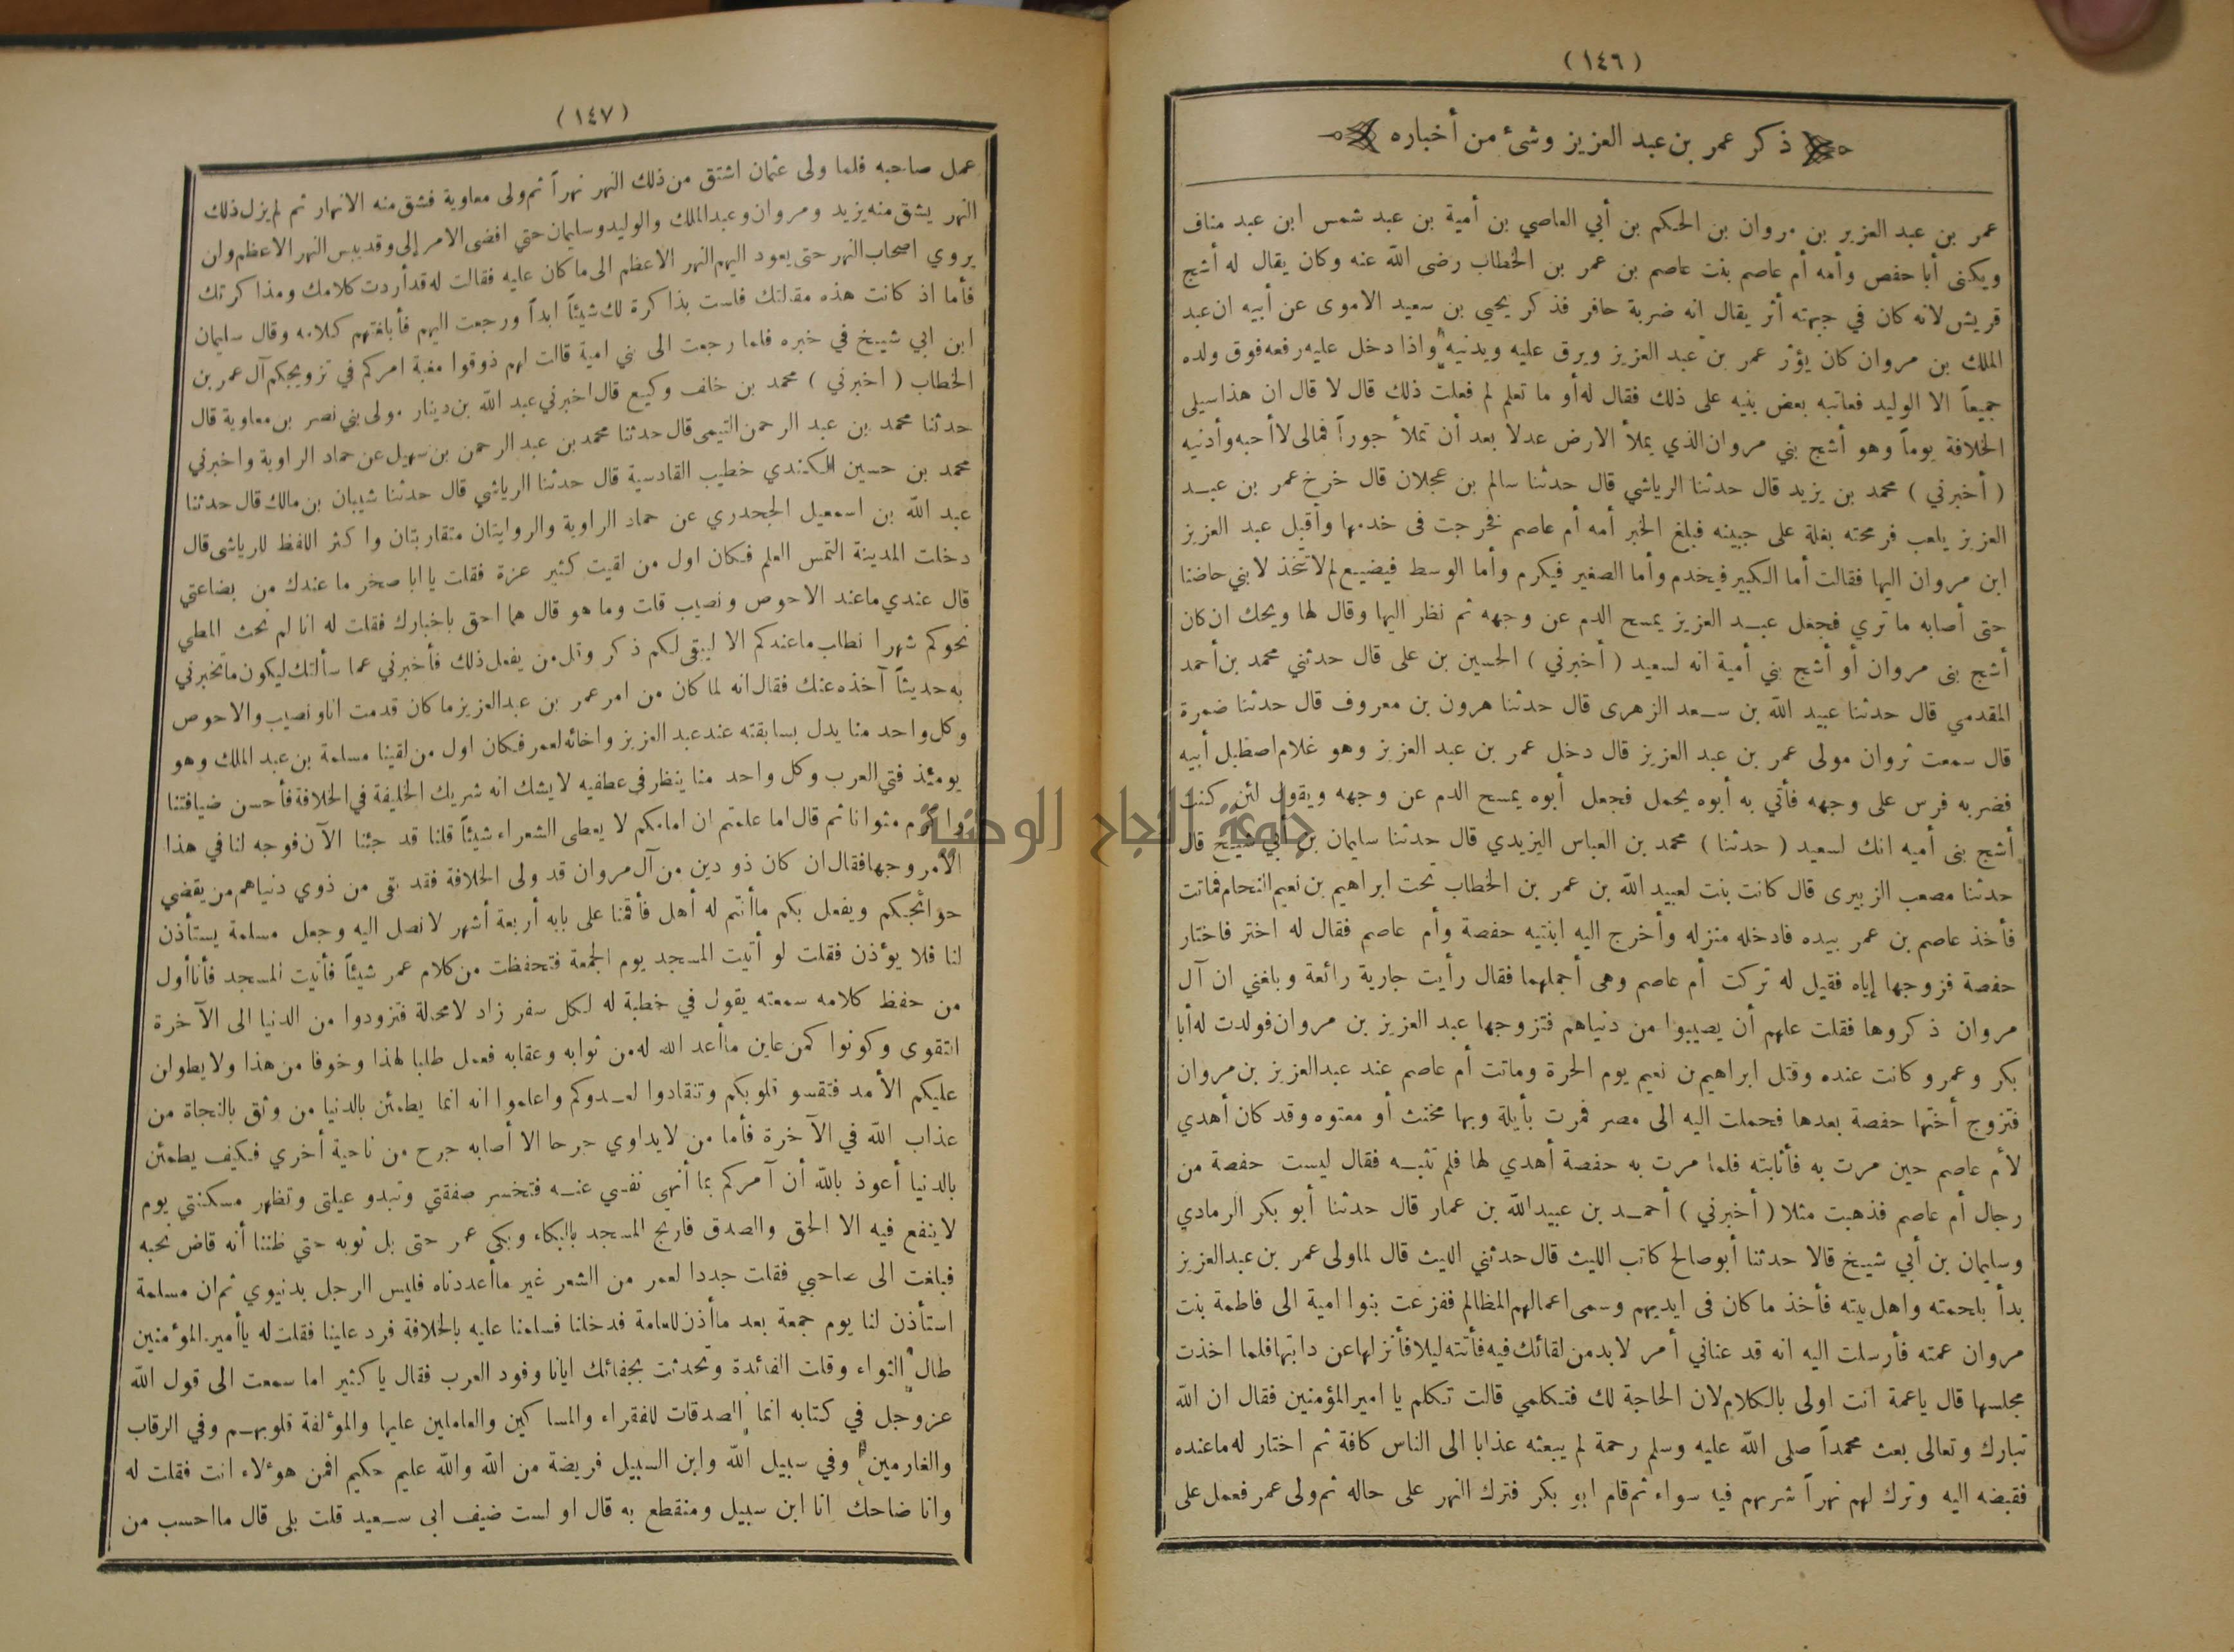 (١٤٦)
ذكر عمر بن عبد العزيز وشئ من أخباره
عمر بن عبد العزيز بن مروان بن الحكم بن أبي العاصي بن أمية بن عبد شمس ابن عبد مناف
ويكنى أبا حفص وأمه أم عاصم بنت عاصم بن عمر بن الخطاب رضى الله عنه وكان يقال له أشج
قريش لانه كان في جبهته أثر يقال انه ضربة حافر فذكر يحيي بن سعيد الاموى عن أبيه ان عبد
الملك بن مروان كان يؤثر عمر بن عبد العزيز ويرق عليه ويدنيه واذا دخل عليه رفعه فوق ولده
جميعاً الا الوليد فعاتبه بعض بنيه على ذلك فقال له أو ما تعلم لم فعلت ذلك قال لا قال ان هذا سيلى
الخلافة يوماً وهو أشج بني مروان الذي يملأ الارض عدلا بعد أن تملأ جوراً فمالى لا أحبه وأدنيه
( أخبرني ) محمد بن يزيد قال حدثنا الرياشي قال حدثنا سالم بن عجلان قال خرج عمر بن عبد
العزيز يلعب فرمحته بغلة على جبينه فبلغ الخبر أمه أم عاصم فخرجت فى خدمها وأقبل عبد العزيز
ابن مروان اليها فقالت أما الكبير فيخدم وأما الصغير فيكرم وأما الوسط فيضيع لم لا تتخذ لابني حاضنا
حتى أصابه ما تري فجعل عبد العزيز يمسح الدم عن وجهه ثم نظر اليها وقال لها ويحك ان كان
أشج بنى مروان أو أشج بني أمية انه لسعيد ( أخبرني ) الحسين بن على قال حدثني محمد بن أحمد
المقدمي قال حدثنا عبيد الله بن سعد الزهرى قال حدثنا هرون بن معروف قال حدثنا ضمرة
قال سمعت ثروان مولى عمر بن عبد العزيز قال دخل عمر بن عبد العزيز وهو غلام اصطبل أبيه
فضربه فرس على وجهه فأتي به أبوه يحمل فجعل أبوه يمسح الدم عن وجهه ويقول لئن كنت
أشج بنى أميه انك لسعيد ( حدثنا ) محمد بن العباس اليزيدي قال حدثنا سليمان بن أبي شيخ قال
حدثنا مصعب الزبيرى قال كانت بنت لعبيد الله بن عمر بن الخطاب تحت ابراهيم بن نعيم النحام فماتت
فأخذ عاصم بن عمر بيده فادخله منزله وأخرج اليه ابنتيه حفصة وأم عاصم فقال له اختر فاختار
حفصة فزوجها إياه فقيل له تركت أم عاصم وهى أجملهما فقال رأيت جارية رائعة وبلغني ان آل
مروان ذكروها فقلت علهم أن يصيبوا من دنياهم فتزوجها عبد العزيز بن مروان فولدت له أبا
بكر وعمر وكانت عنده وقتل ابراهيم بن نعيم يوم الحرة وماتت أم عاصم عند عبد العزيز بن مروان
فتزوج أختها حفصة بعدها فحملت اليه الى مصر فمرت بأيلة وبها مخنث أو معتوه وقد كان أهدي
لأم عاصم حين مرت به فأثابته فلما مرت به حفصة أهدي لها فلم تثبه فقال ليست حفصة من
رجال أم عاصم فذهبت مثلا ( أخبرني ) أحمد بن عبيد الله بن عمار قال حدثنا أبو بكر الرمادي
وسليمان بن أبي شيخ قالا حدثنا أبو صالح كاتب الليث قال حدثني الليث قال لما ولى عمر بن عبد العزيز
بدأ بلحمته واهل بيته فأخذ ما كان فى ايديهم وسمى اعمالهم المظالم ففزعت بنوا امية الى فاطمة بنت
مروان عمته فأرسلت اليه انه قد عناني أمر لابد من لقائك فيه فأتته ليلا فأنزلها عن دابتها فلما اخذت
مجلسها قال ياعمة انت اولى بالكلام لان الحاجة لك فتكلمي قالت تكلم يا امير المؤمنين فقال ان الله
تبارك وتعالى بعث محمداً صلى الله عليه وسلم رحمة لم يبعثه عذابا الى الناس كافة ثم اختار له ما عنده
فقبضه اليه وترك لهم نهراً شربهم فيه سواء ثم قام ابو بكر فترك النهر على حاله ثم ولى عمر فعمل على
(١٤٧)
عمل صاحبه فلما ولى عثمان اشتق من ذلك النهر نهراً ثم ولى معاوية فشق منه الانهار ثم لم يزل ذلك
النهر يشق منه يزيد ومروان وعبد الملك والوليد وسليمان حتي افضى الامر إلى وقد يبس النهر الاعظم ولن
يروي اصحاب النهر حتى يعود اليهم النهر الاعظم الى ما كان عليه فقالت له قد أردت كلامك ومذاكرتك
فأما اذ كانت هذه مقالتك فلست بذاكرة لك شيئاً ابداً ورجعت اليهم فأبلغتهم كلامه وقال سليمان
ابن ابي شيخ في خبره فلما رجعت الى بني امية قالت لهم ذوقوا مغبة امركم في تزويجكم آل عمر بن
الخطاب ( اخبرني ) محمد بن خلف وكيع قال اخبرني عبد الله بن دينار مولى بني نصر بن معاوية قال
حدثنا محمد بن عبد الرحمن التيمى قال حدثنا محمد بن عبد الرحمن بن سهيل عن حماد الراوية واخبرني
محمد بن حسين الكندي خطيب القادسية قال حدثنا الرياشي قال حدثنا شيبان بن مالك قال حدثنا
عبد الله بن اسمعيل الجحدري عن حماد الراوية والروايتان متقاربتان واكثر اللفظ للرياشى قال
دخلت المدينة التمس العلم فكان اول من لقيت كثير عزة فقلت يا ابا صخر ما عندك من بضاعتي
قال عندي ما عند الاحوص ونصيب قلت وما هو قال هما احق باخبارك فقلت له انا لم نحث المطي
نحوكم شهرا نطلب ما عندكم الا ليبقى لكم ذكر وقل من يفعل ذلك فأخبرني عما سألتك ليكون ما تخبرني
به حديثاً آخذه عنك فقال انه لما كان من امر عمر بن عبد العزيز ما كان قدمت انا ونصيب والاحوص
وكل واحد منا يدل بسابقته عند عبد العزيز واخائه لعمر فكان اول من لقينا مسلمة بن عبد الملك وهو
يومئذ فتي العرب وكل واحد منا ينظر في عطفيه لا يشك انه شريك الخليفة في الخلافة فأحسن ضيافتنا
واكرم مثوانا ثم قال اما علمتم ان امامكم لا يعطى الشعراء شيئاً قلنا قد جئنا الآن فوجه لنا في هذا
الأمر وجها فقال ان كان ذو دين من آل مروان قد ولى الخلافة فقد بقى من ذوي دنياهم من يقضي
حوائجكم ويفعل بكم ما أنتم له أهل فأقمنا على بابه أربعة أشهر لا نصل اليه وجعل مسلمة يستأذن
لنا فلا يؤذن فقلت لو أتيت المسجد يوم الجمعة فتحفظت من كلام عمر شيئاً فأتيت المسجد فأنا أول
من حفظ كلامه سمعته يقول في خطبة له لكل سفر زاد لا محالة فتزودوا من الدنيا الى الآخرة
التقوى وكونوا كمن عاين ما أعد الله له من ثوابه وعقابه فعمل طلبا لهذا وخوفا من هذا ولا يطولن
عليكم الأمد فتقسو قلوبكم وتنقادوا لعدوكم واعلموا انه انما يطمئن بالدنيا من وثق بالنجاة من
عذاب الله في الآخرة فأما من لا يداوي جرحا الا أصابه جرح من ناحية أخري فكيف يطمئن
بالدنيا أعوذ بالله أن آمركم بما أنهى نفسي عنه فتخسر صفقتي وتبدو عيلتى وتظهر مسكنتي يوم
لا ينفع فيه الا الحق والصدق فارتج المسجد بالبكاء وبكي عمر حتى بل ثوبه حتي ظننا أنه قاض نحبه
فبلغت الى صاحبي فقلت جددا لعمر من الشعر غير ما أعددناه فليس الرجل بدنيوي ثم ان مسلمة
استأذن لنا يوم جمعة بعد ما أذن للعامة فدخلنا فسلمنا عليه بالخلافة فرد علينا فقلت له يا أمير المؤمنين
طال الثواء وقلت الفائدة وتحدثت بجفائك ايانا وفود العرب فقال يا كثير اما سمعت الى قول الله
عز وجل في كتابه انما الصدقات للفقراء والمساكين والعاملين عليها والمؤلفة قلوبهم وفي الرقاب
والغارمين وفي سبيل الله وابن السبيل فريضة من الله والله عليم حكيم افمن هؤلاء انت فقلت له
وانا ضاحك انا ابن سبيل ومنقطع به قال او لست ضيف ابى سعيد قلت بلى قال ما احسب من
جامعة النجاح الوطنية